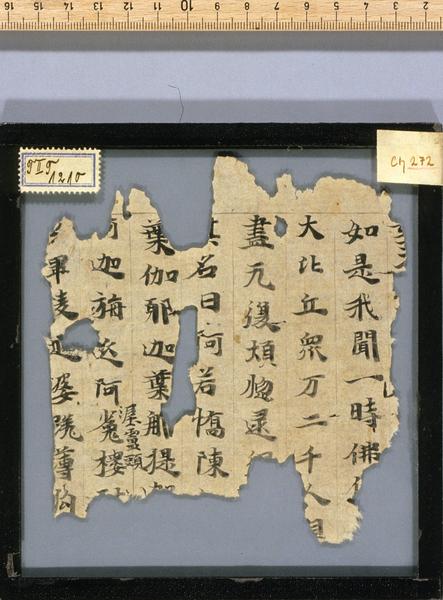 16 15 14 13 12 11 10 9 8 7 6 5 4 3 2
T II T
1210
Ch 272
如是我聞一時佛
大比丘衆万二千人
盡无復煩惱逮
其名曰阿若憍陳
葉伽耶迦葉那提
迦旃延阿㝹樓
畢陵 婆蹉薄拘